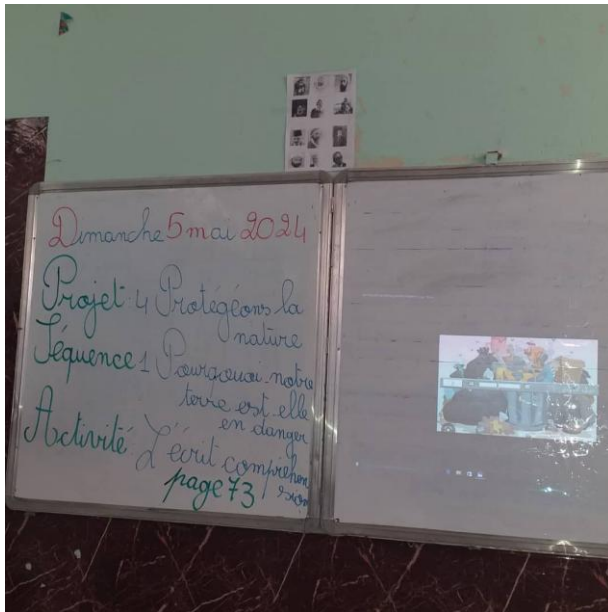 Dimanche 5 mai 2024
Projet : 4 Protégéons la
nature
Séquence 1 Pourquoi notre
terre est elle
en danger
Activité L'écrit compréhen
sion
page 73